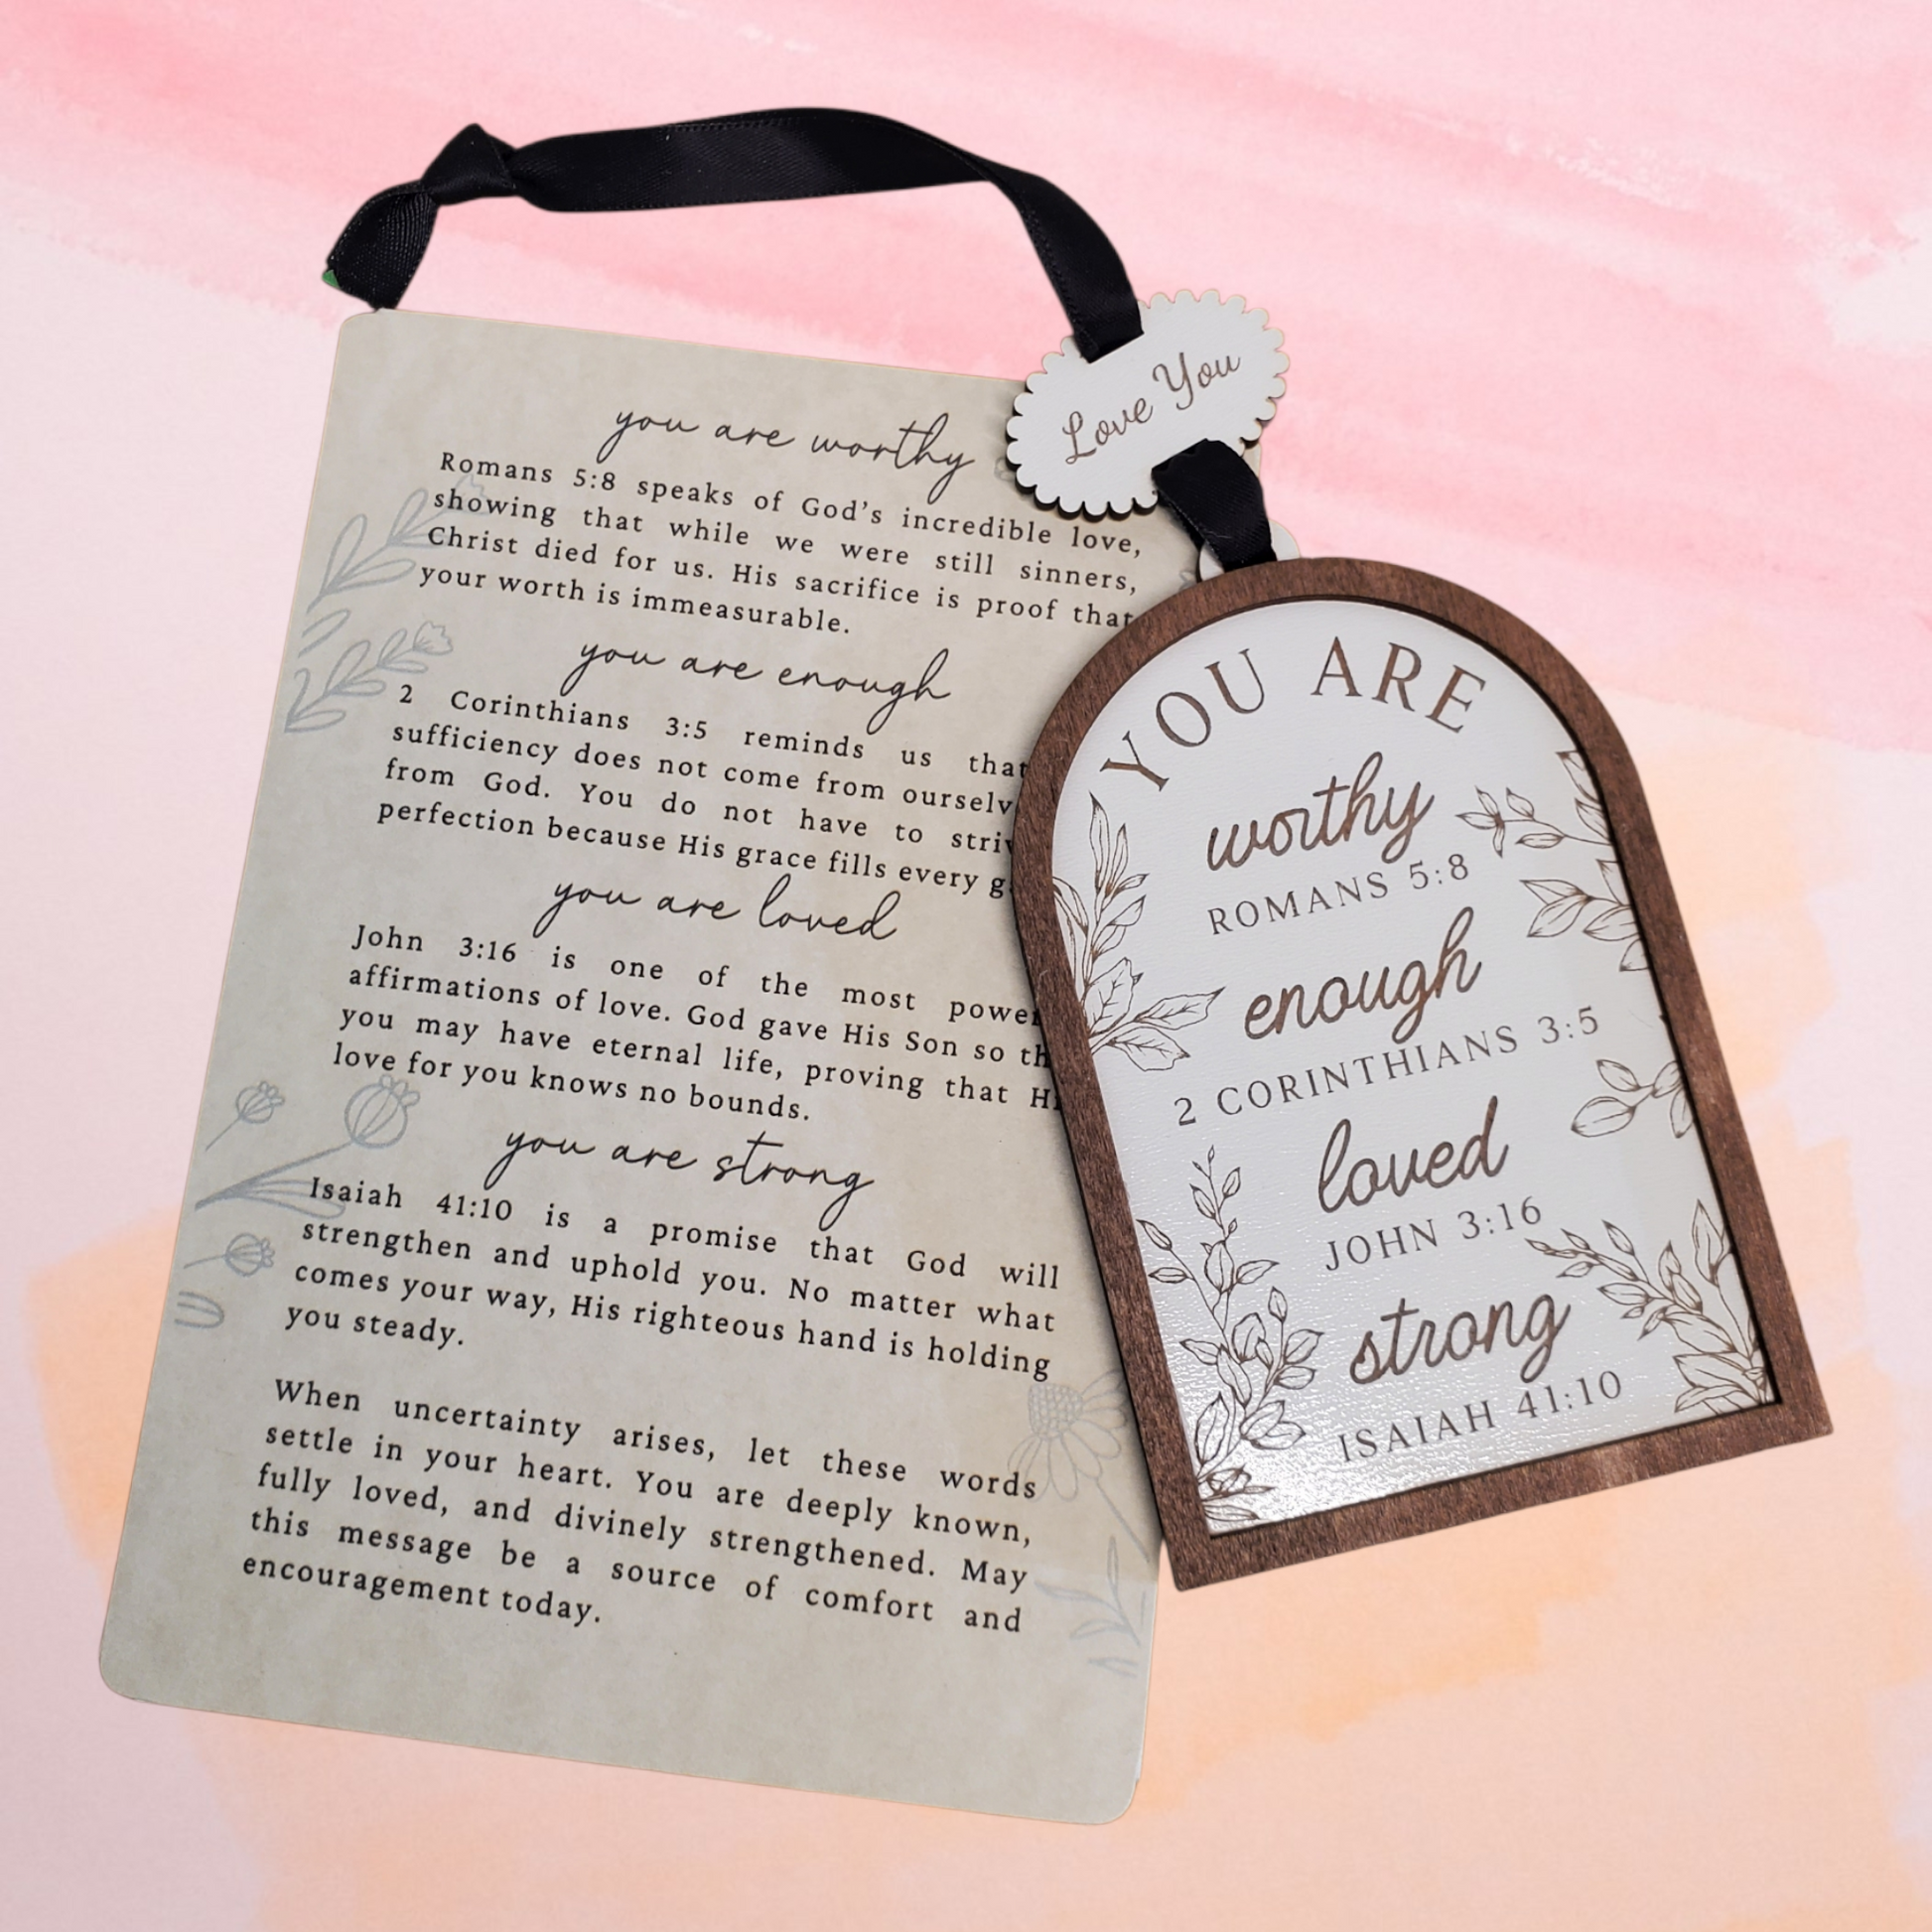 you are worthy
Romans 5:8 speaks of God's incredible love,
showing that while we were still sinners,
Christ died for us. His sacrifice is proof that
your worth is immeasurable.
you are enough
2 Corinthians 3:5 reminds us that
sufficiency does not come from
from God. You do not have to
perfection because His grace fills every
you are loved
John 3:16 is one of the most
affirmations of love. God gave His Son so
you may have eternal life, proving that
love for you knows no bounds.
you are strong
Isaiah 41:10 is a promise that God will
strengthen and uphold you. No matter what
comes your way, His righteous hand is holding
you steady.
When uncertainty arises, let these words
settle in your heart. You are deeply known,
fully loved, and divinely strengthened. May
this message be a source of comfort and
encouragement today.
Love You
YOU ARE
worthy
ROMANS 5:8
enough
2 CORINTHIANS 3:5
loved
JOHN 3:16
strong
ISAIAH 41:10